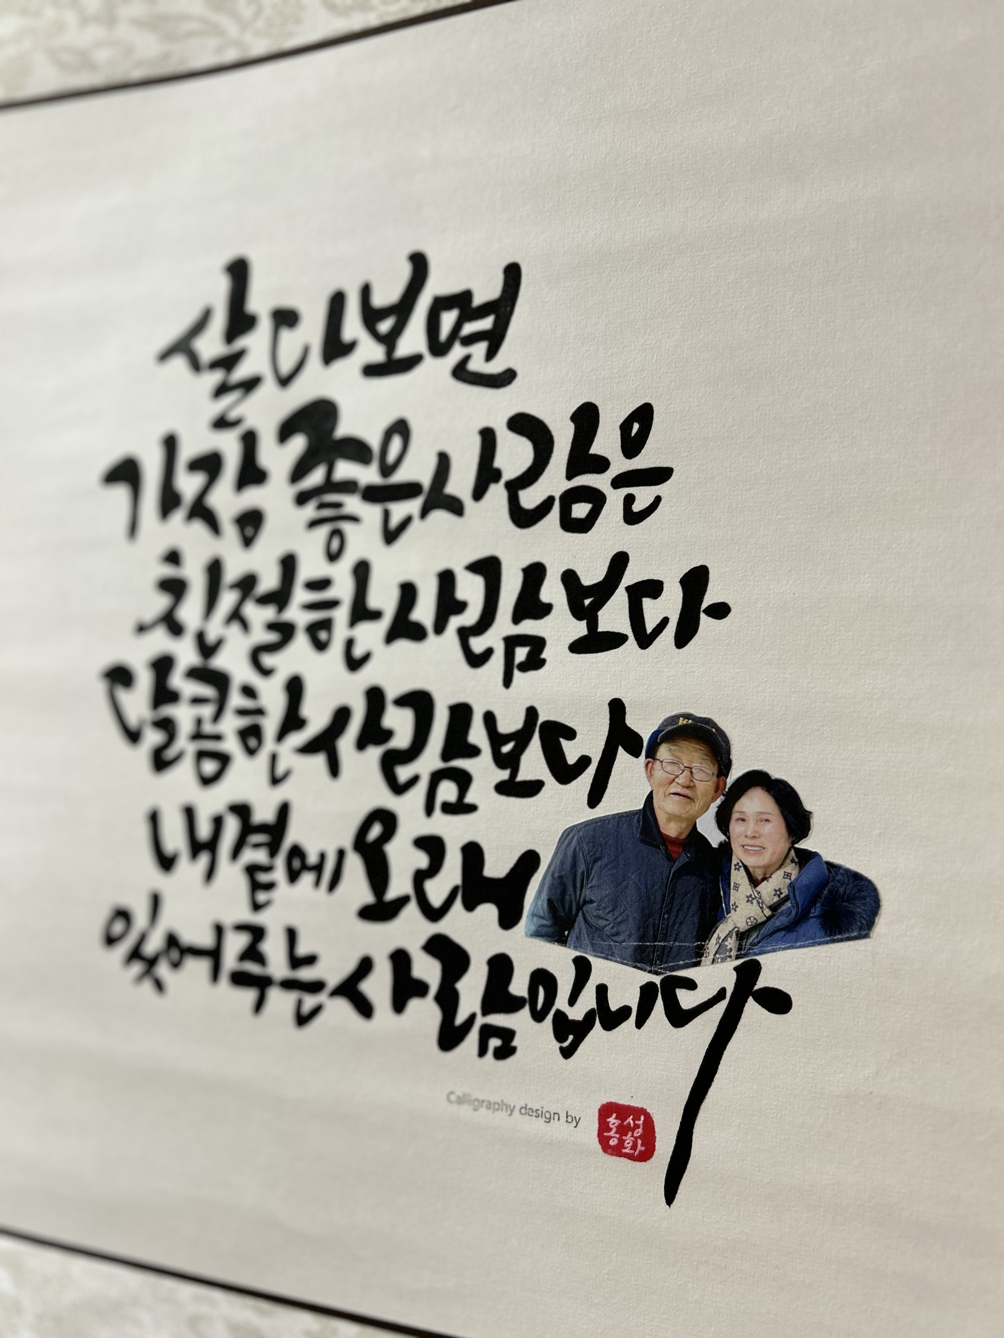 살다보면
가장 좋은 사람은
친절한 사람보다
달콤한 사람보다
내곁에 오래
있어주는 사람입니다
Calligraphy design by
홍성화